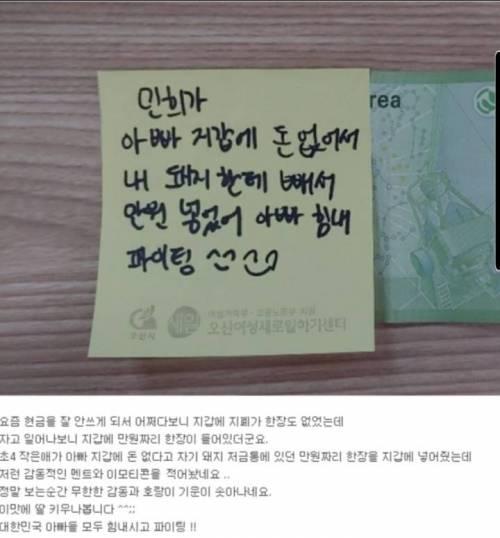 민희가
아빠 지갑에 돈 없어서
내 돼지 한테 빼서
만원 넣었어 아빠 힘내
파이팅 ^^
rea
오산시
새일
여성가족부·고용노동부 지정
오산여성새로일하기센터
요즘 현금을 잘 안쓰게 되서 어쩌다보니 지갑에 지폐가 한장도 없었는데
자고 일어나보니 지갑에 만원짜리 한장이 들어있더군요.
초4 작은애가 아빠 지갑에 돈 없다고 자기 돼지 저금통에 있던 만원짜리 한장을 지갑에 넣어줬는데
저런 감동적인 멘트와 이모티콘을 적어놨네요 ..
정말 보는순간 무한한 감동과 호랑이 기운이 솟아나네요.
이맛에 딸 키우나봅니다 ^^;;
대한민국 아빠들 모두 힘내시고 파이팅 !!